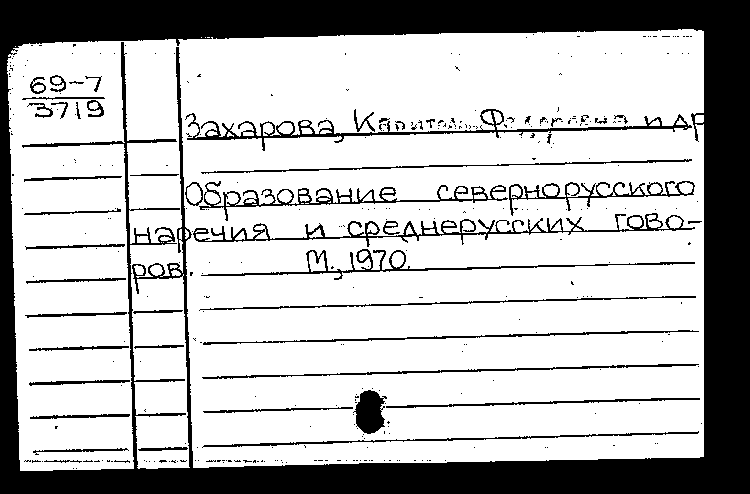 69-7
3719
Захарова, Капитолина Федоровна и др
Образование севернорусского
наречия и среднерусских гово-
ров. М., 1970.